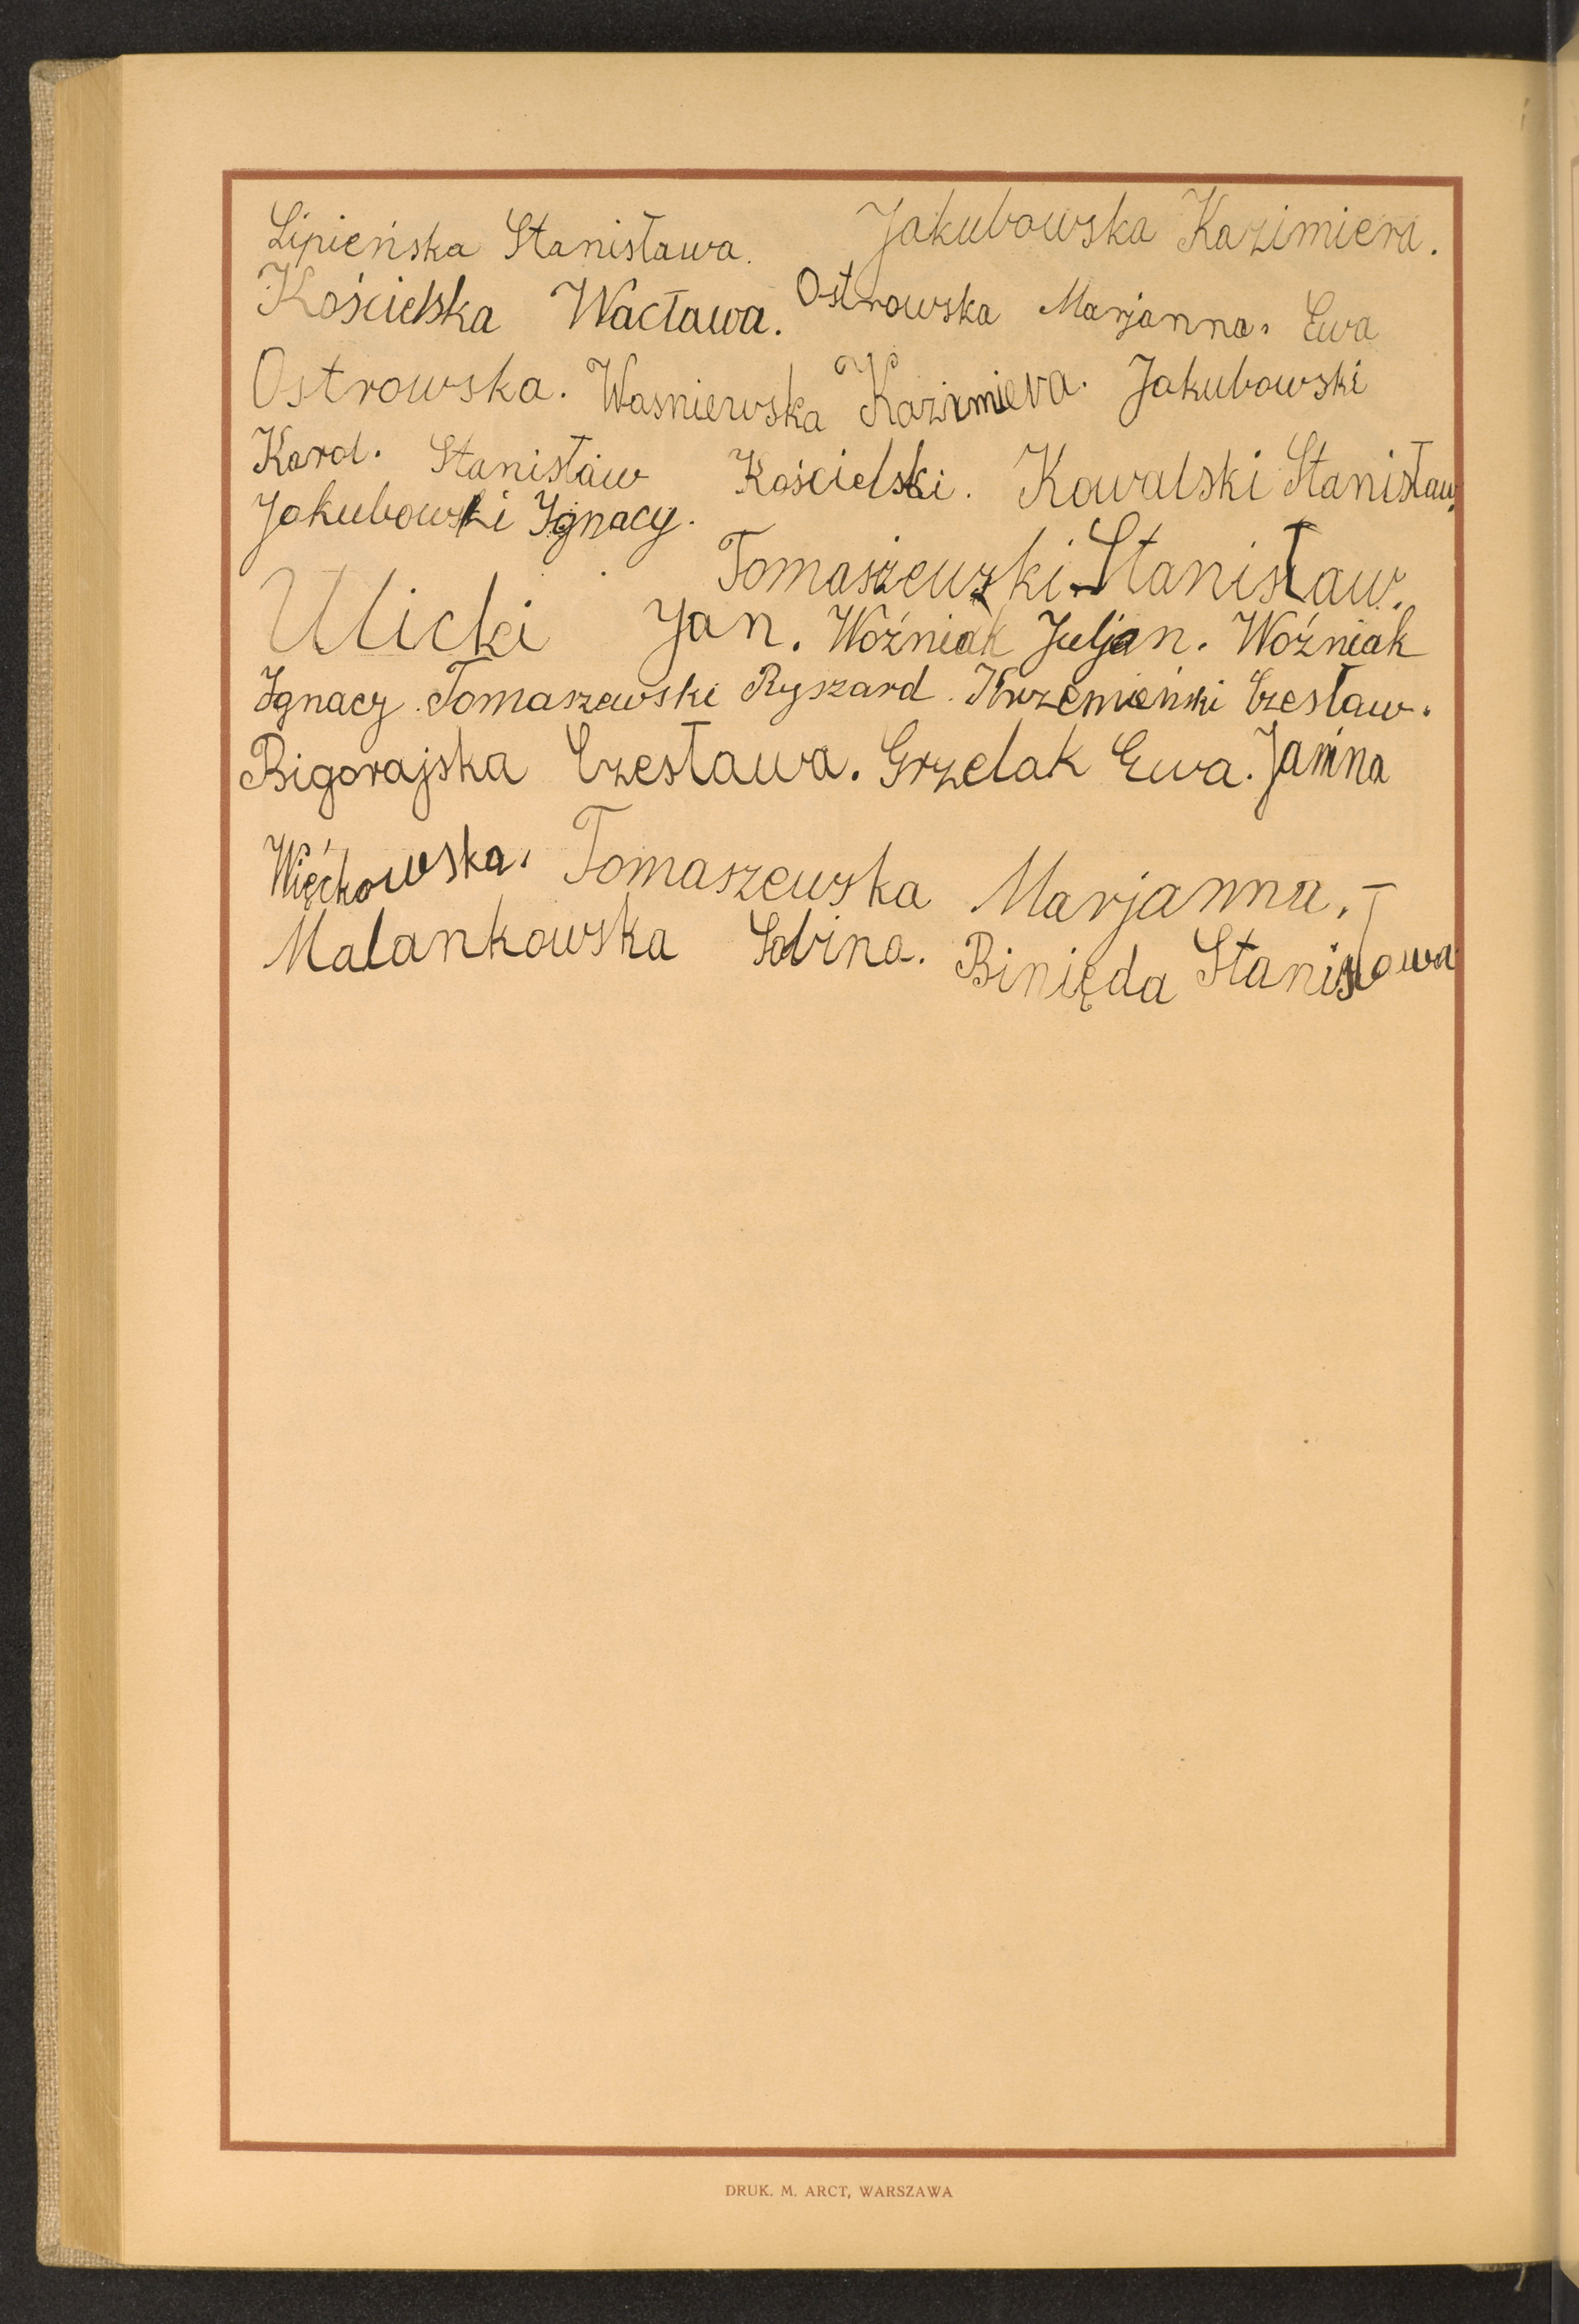 Lipieńska Stanisława. Jakubowska Kazimiera.
Kościelska Wacława. Ostrowska Marjanna. Ewa
Ostrowska. Wasniewska Kazimiera. Jakubowski
Karol. Stanisław Kościelski. Kowalski Stanisław.
Jakubowski Ignacy.
Tomaszewski Stanisław.
Ulicki Jan. Woźniak Juljan. Woźniak
Ignacy. Tomaszewski Ryszard. Krzemieński Czesław.
Bigorajska Czesława. Grzelak Ewa. Janina
Więckowska. Tomaszewska Marjanna.
Malankowska Sabina. Binięda Stanisława
DRUK. M. ARCT, WARSZAWA